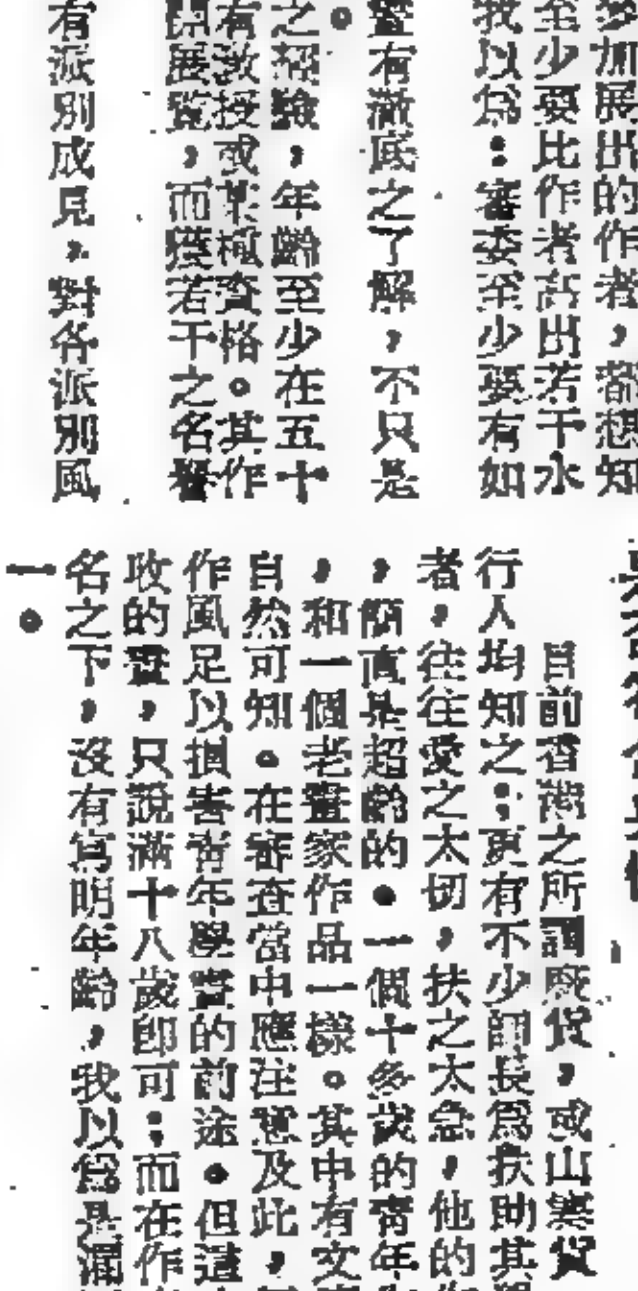 參加展出的作者，都想知
至少要比作者高出若干水
我以爲：審委至少要有如
畫有澈底之了解，不只是
。
之經驗，年齡至少在五十
有教授或某種資格。其作
開展覽，而獲若干之名譽
有派別成見，對各派別風
目前香港之所謂廢貨，或山寨貨
行人均知之；更有不少師長爲扶助其
者，往往愛之太切，扶之太急，他的
，簡直是超齡的。一個十多歲的青年
，和一個老畫家作品一樣。其中有文
自然可知。在審查當中應注意及此，
作風足以損害青年學畫的前途。但這
收的畫，只說滿十八歲卽可；而在作
名之下，沒有寫明年齡，我以爲是漏
一。